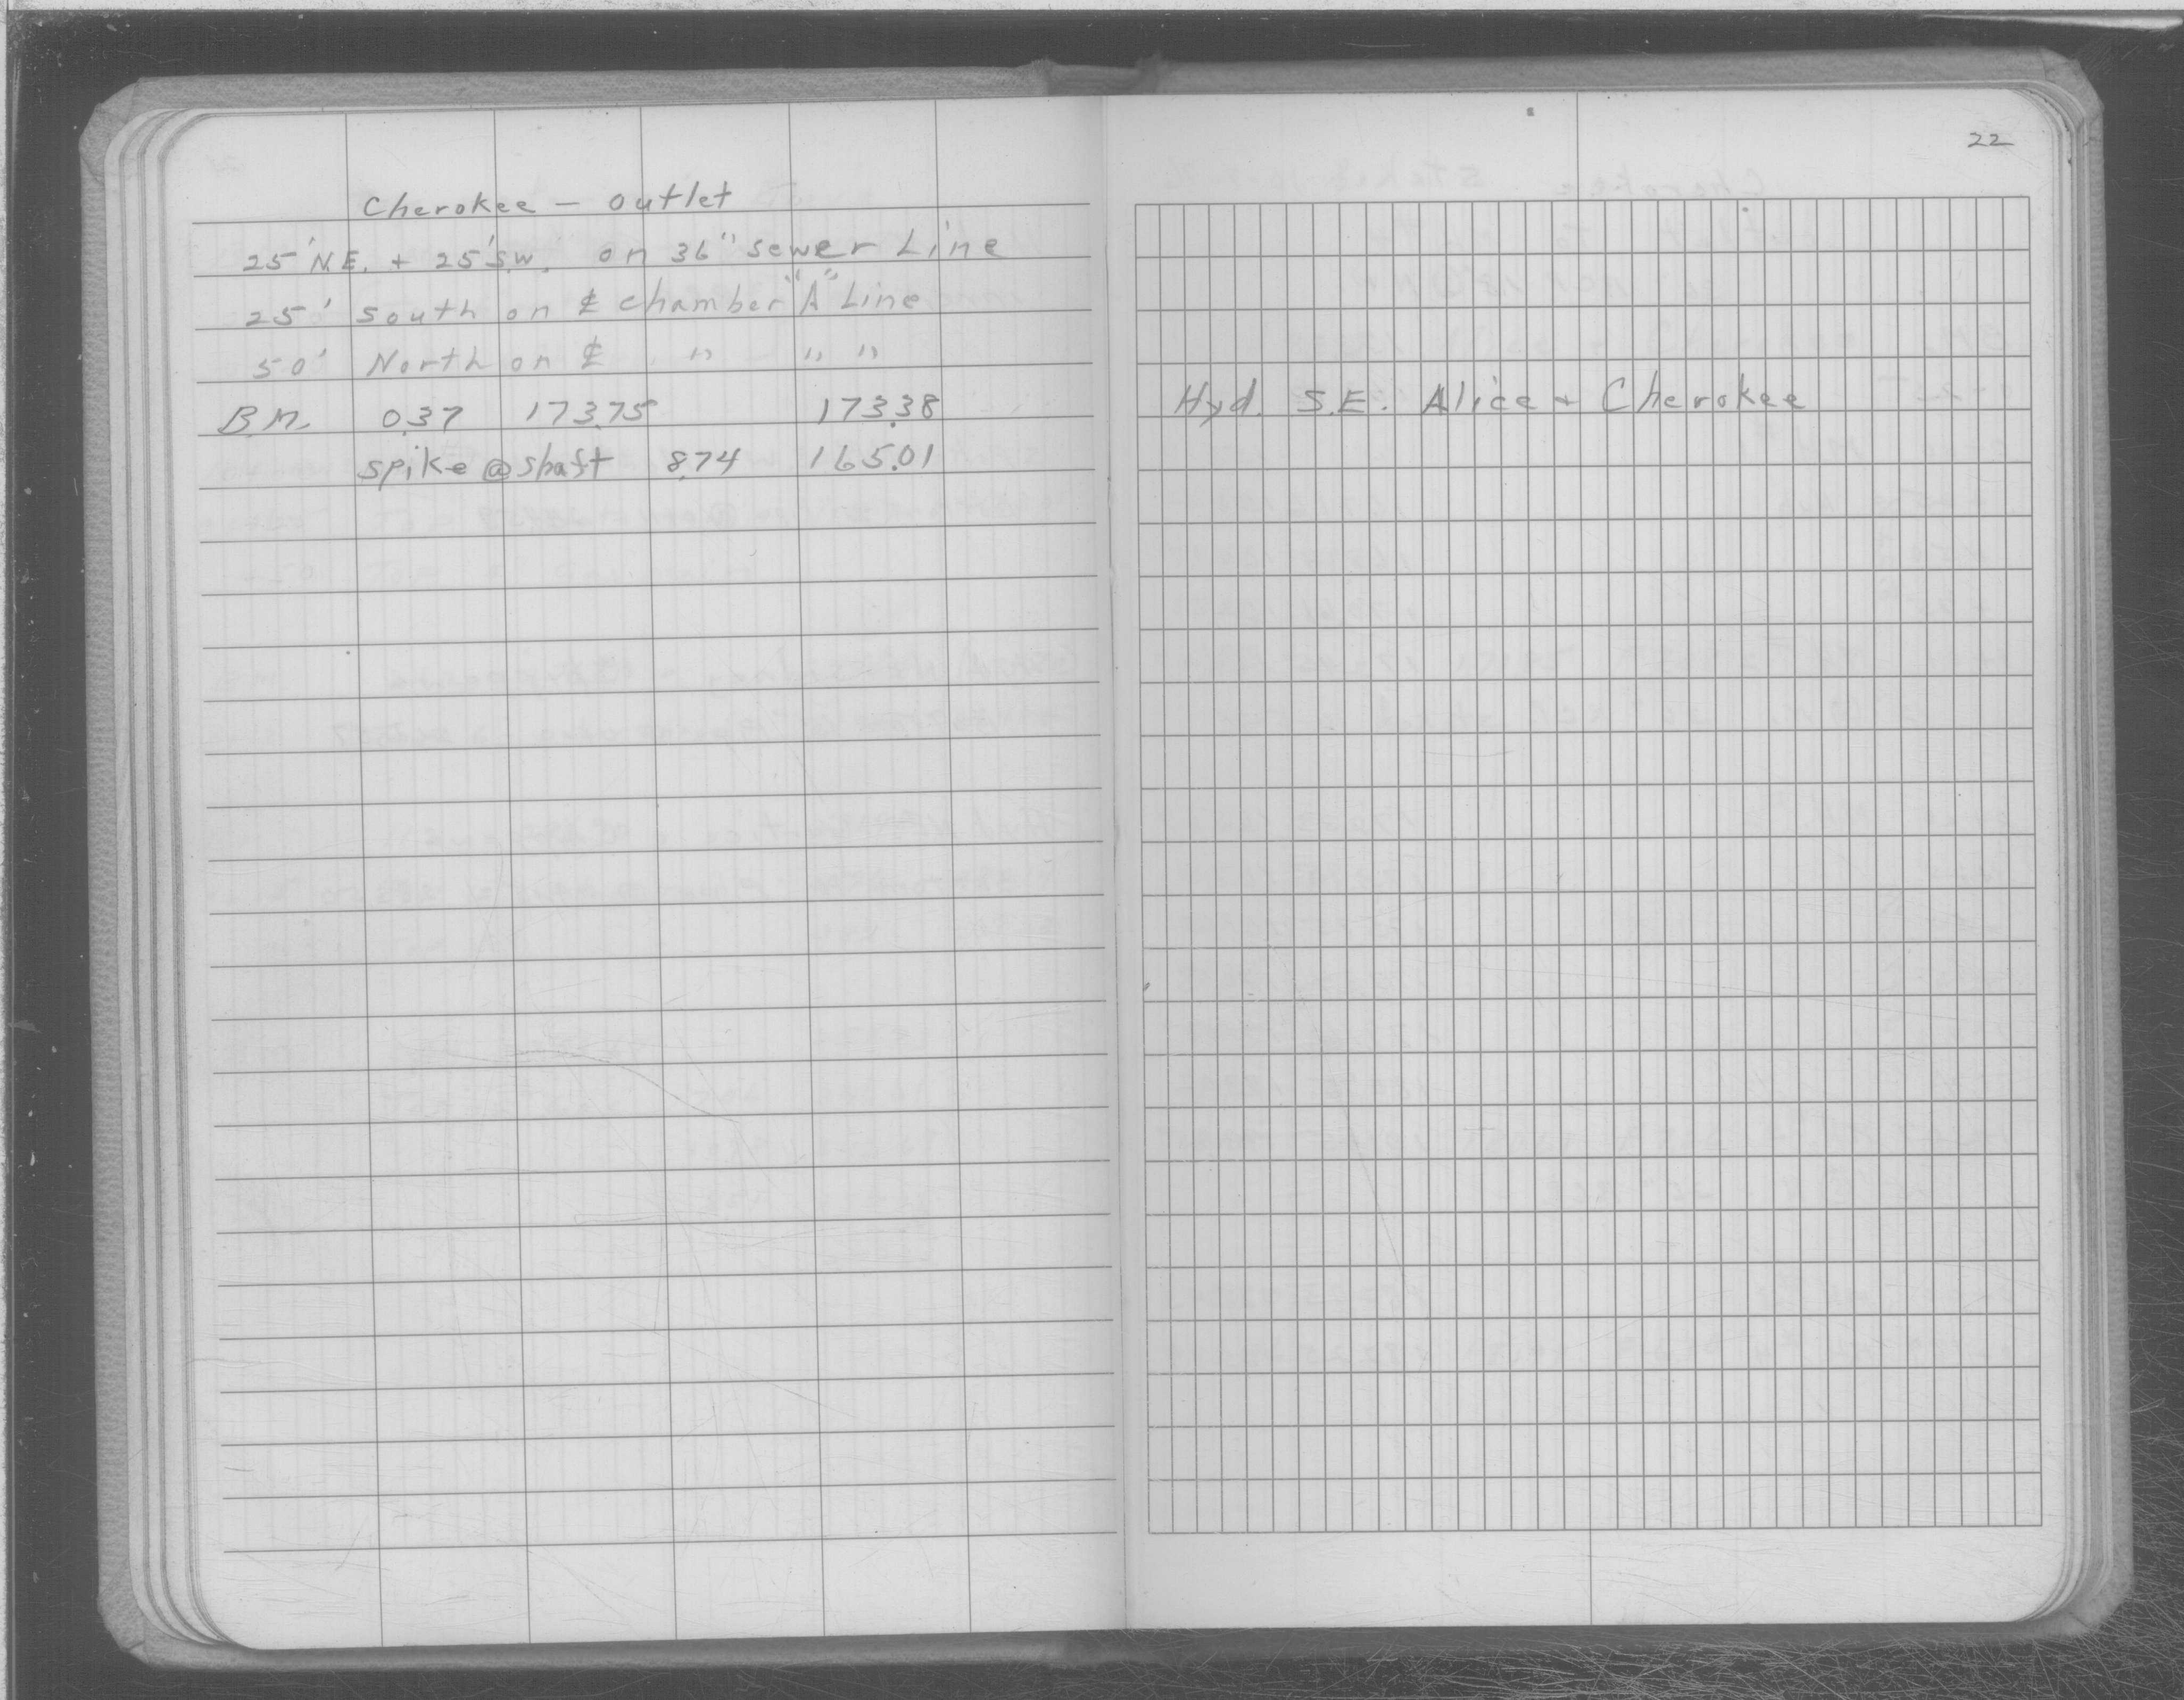 22
Cherokee — outlet
25' N.E. + 25' S.W. on 36" sewer Line
25' south on ℄ chamber "A" Line
50' North on ℄ " " "
B.M. 0.37 173.75 173.38 Hyd. S.E. Alice + Cherokee
spike @ shaft 8.74 165.01